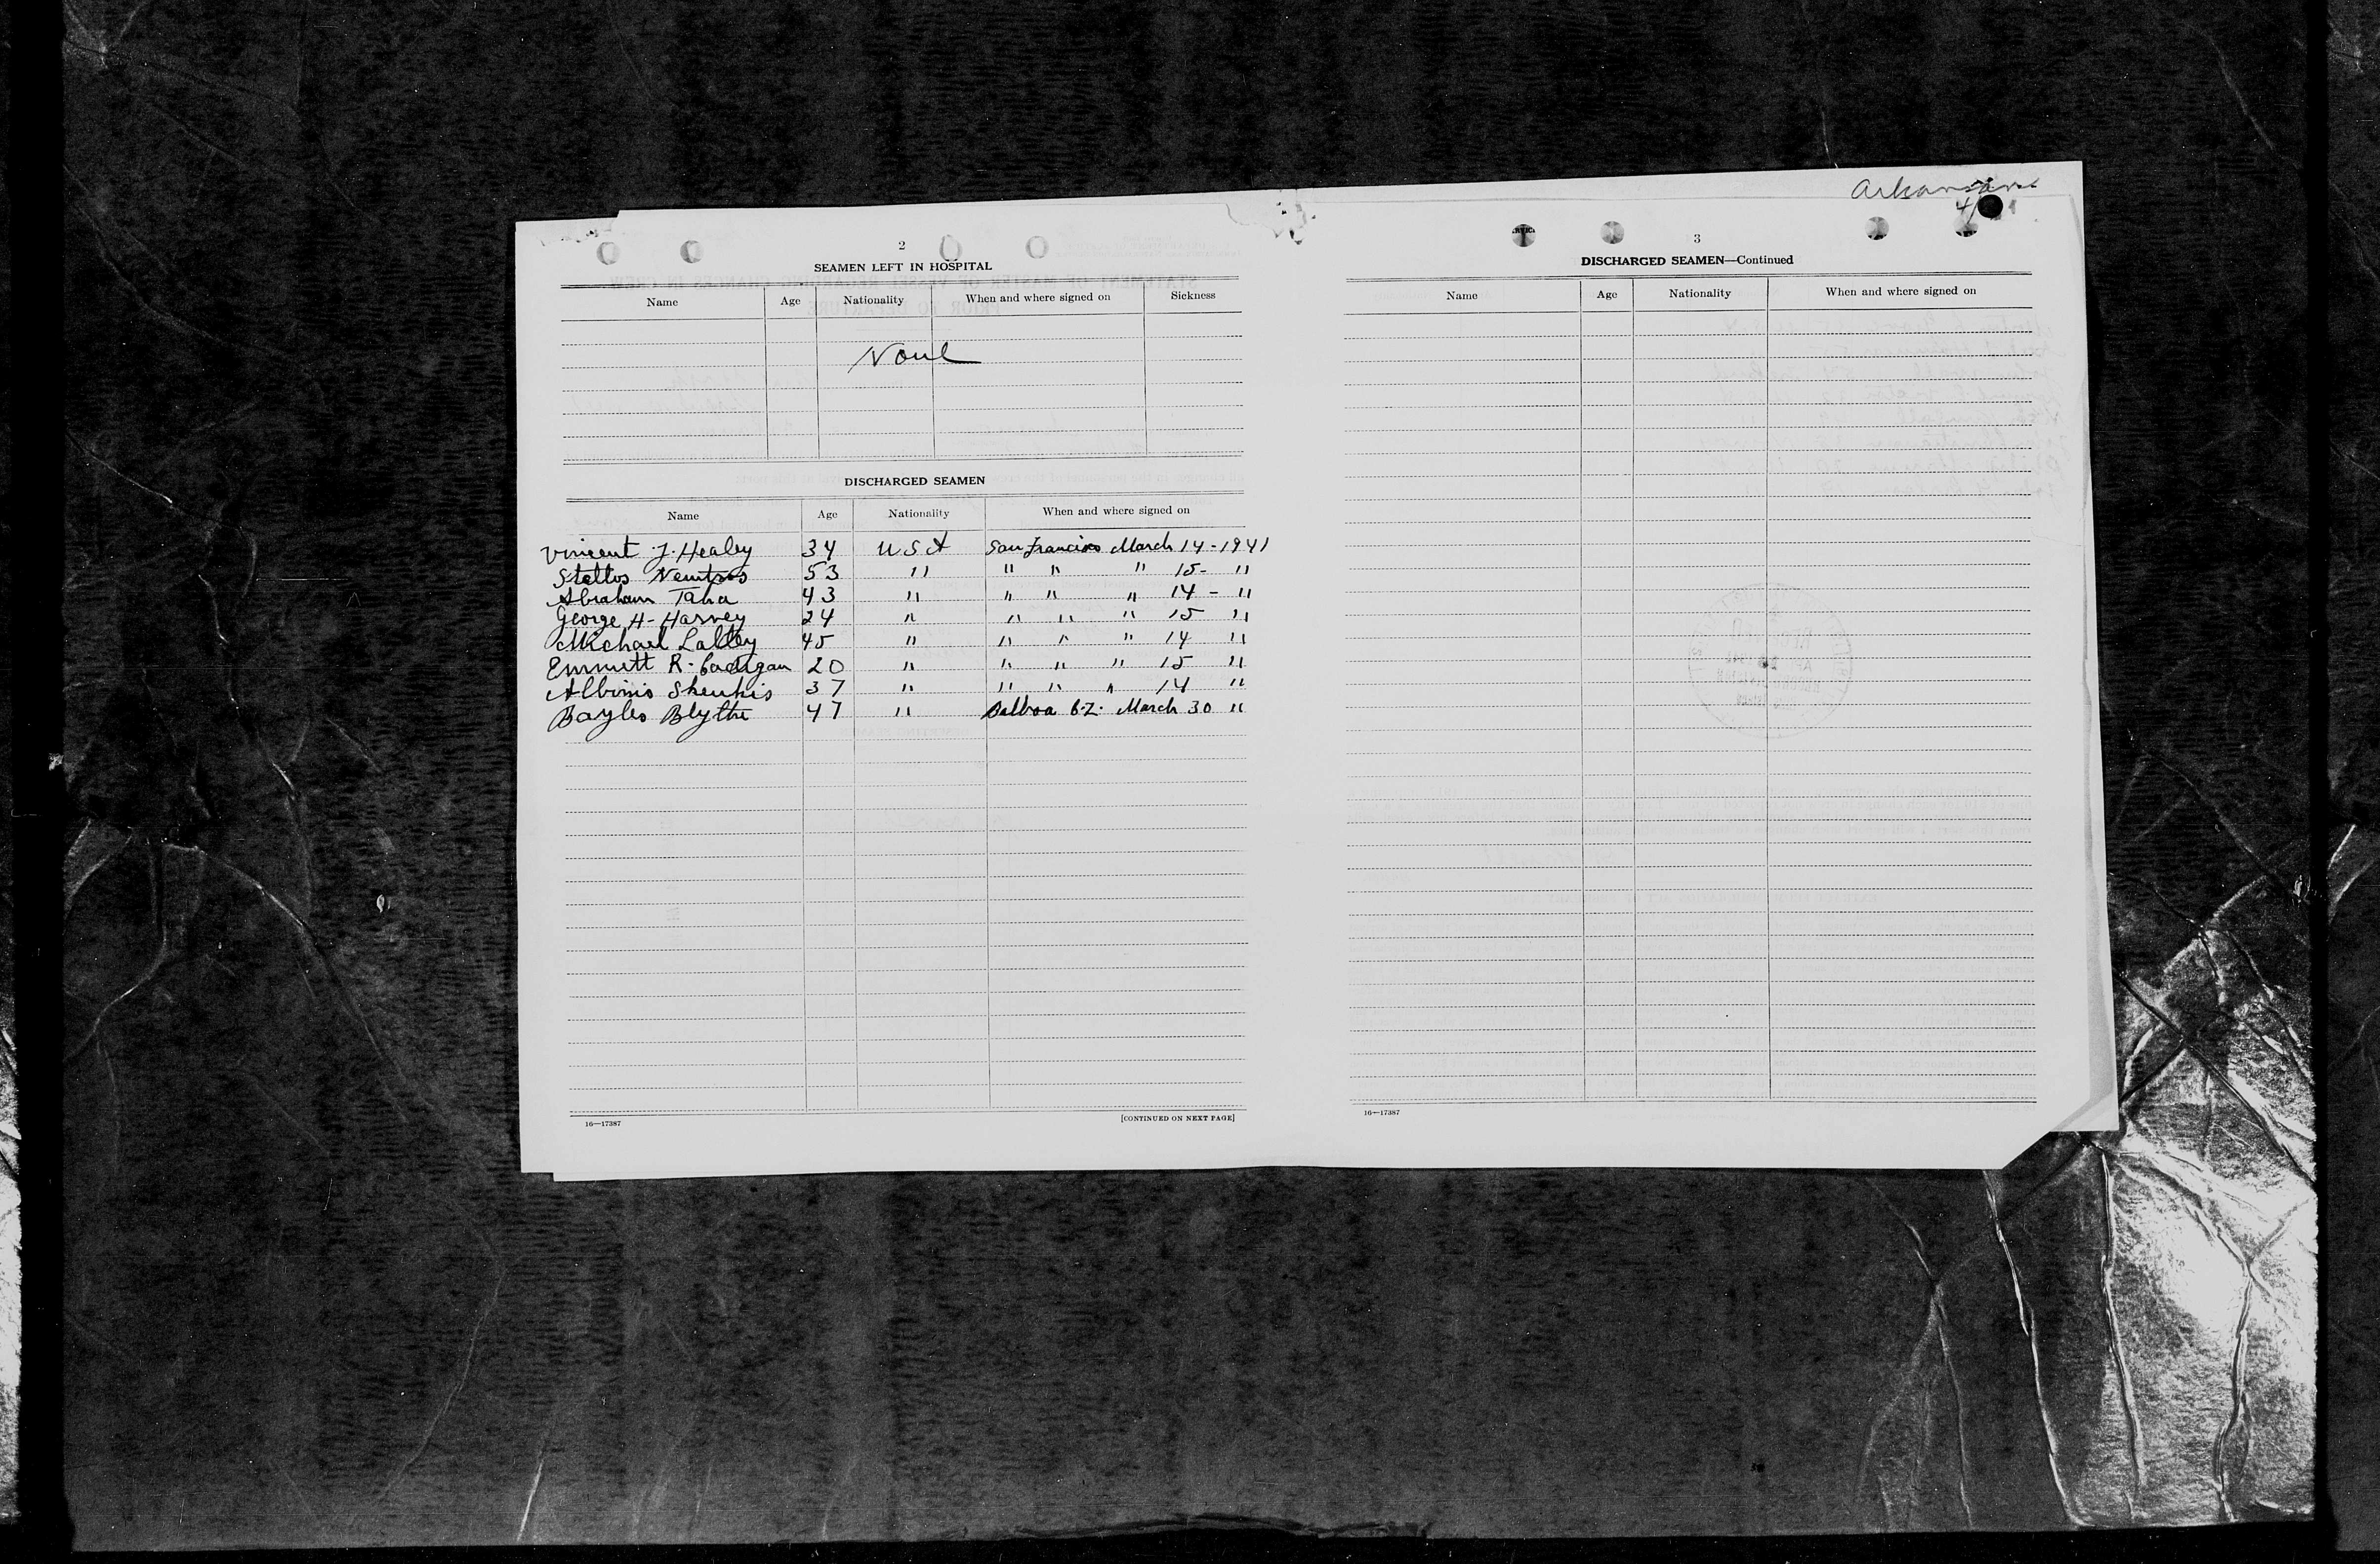 2
SEAMEN LEFT IN HOSPITAL
Name Age Nationality When and where signed on Sickness
None
DISCHARGED SEAMEN
Name Age Nationality When and where signed on
Vincent J. Healey 34 U S A San Francisco March 14-1941
53 " " " " 15- "
Abraham Taha 43 " " " " 14 - "
George H. Harvey 24 " " " " 15 "
Michael 45 " " " " 14 "
Emmett R. Cadigan 20 " " " " 15 "
Albinis 37 " " " " 14 "
Bayles Blythe 47 " Balboa C.Z. March 30 "
16—17387
[CONTINUED ON NEXT PAGE]
Arkansan
3
DISCHARGED SEAMEN—Continued
Name Age Nationality When and where signed on
16—17387